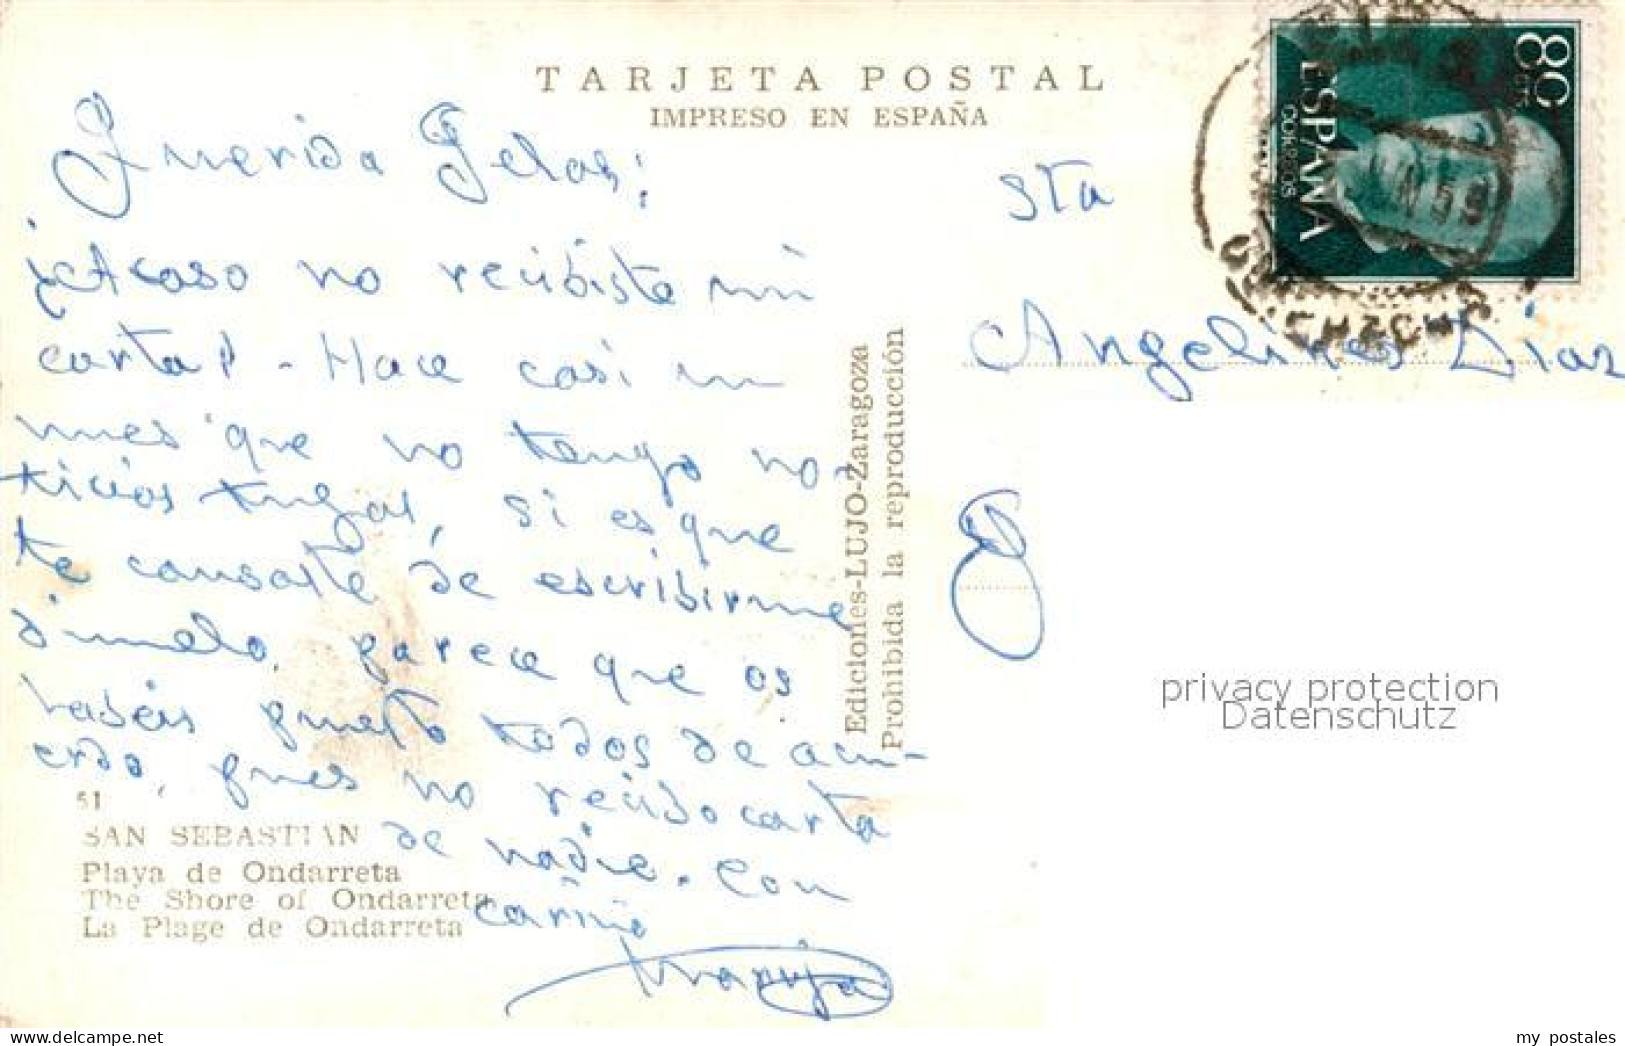 TARJETA POSTAL
IMPRESO EN ESPAÑA
Querida
¿Acaso no recibiste mi
carta? - Hace casi un
mes que no tengo no-
ticias tuyas, si es que
te cansaste de escribirme
dímelo, parece que os
habéis puesto todos de acu-
erdo, pues no recibo carta
de nadie. Con
cariño
Maruja
51
SAN SEBASTIAN
Playa de Ondarreta
The Shore of Ondarreta
La Plage de Ondarreta
Ediciones-LUJO-Zaragoza
Prohibida la reproducción
Sta
Angelines Diaz
80 CTS
ESPAÑA
CORREOS
privacy protection
Datenschutz
delcampe.net
my_postales